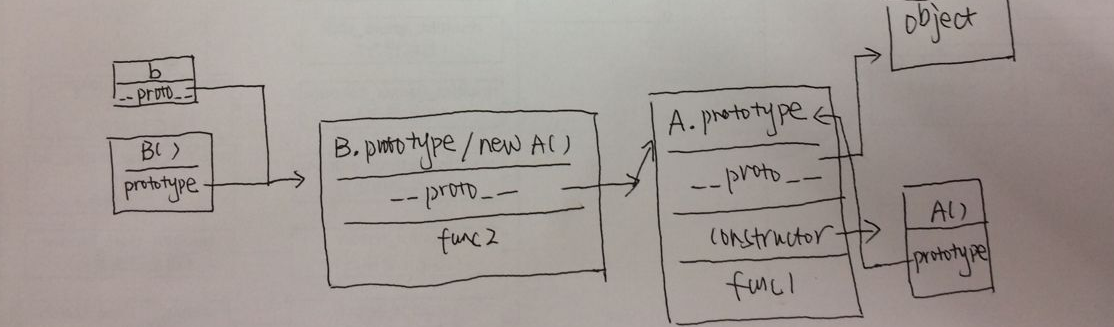 b
__proto__
B()
prototype
B.prototype/new A()
__proto__
func2
A.prototype
__proto__
constructor
func1
object
A()
prototype